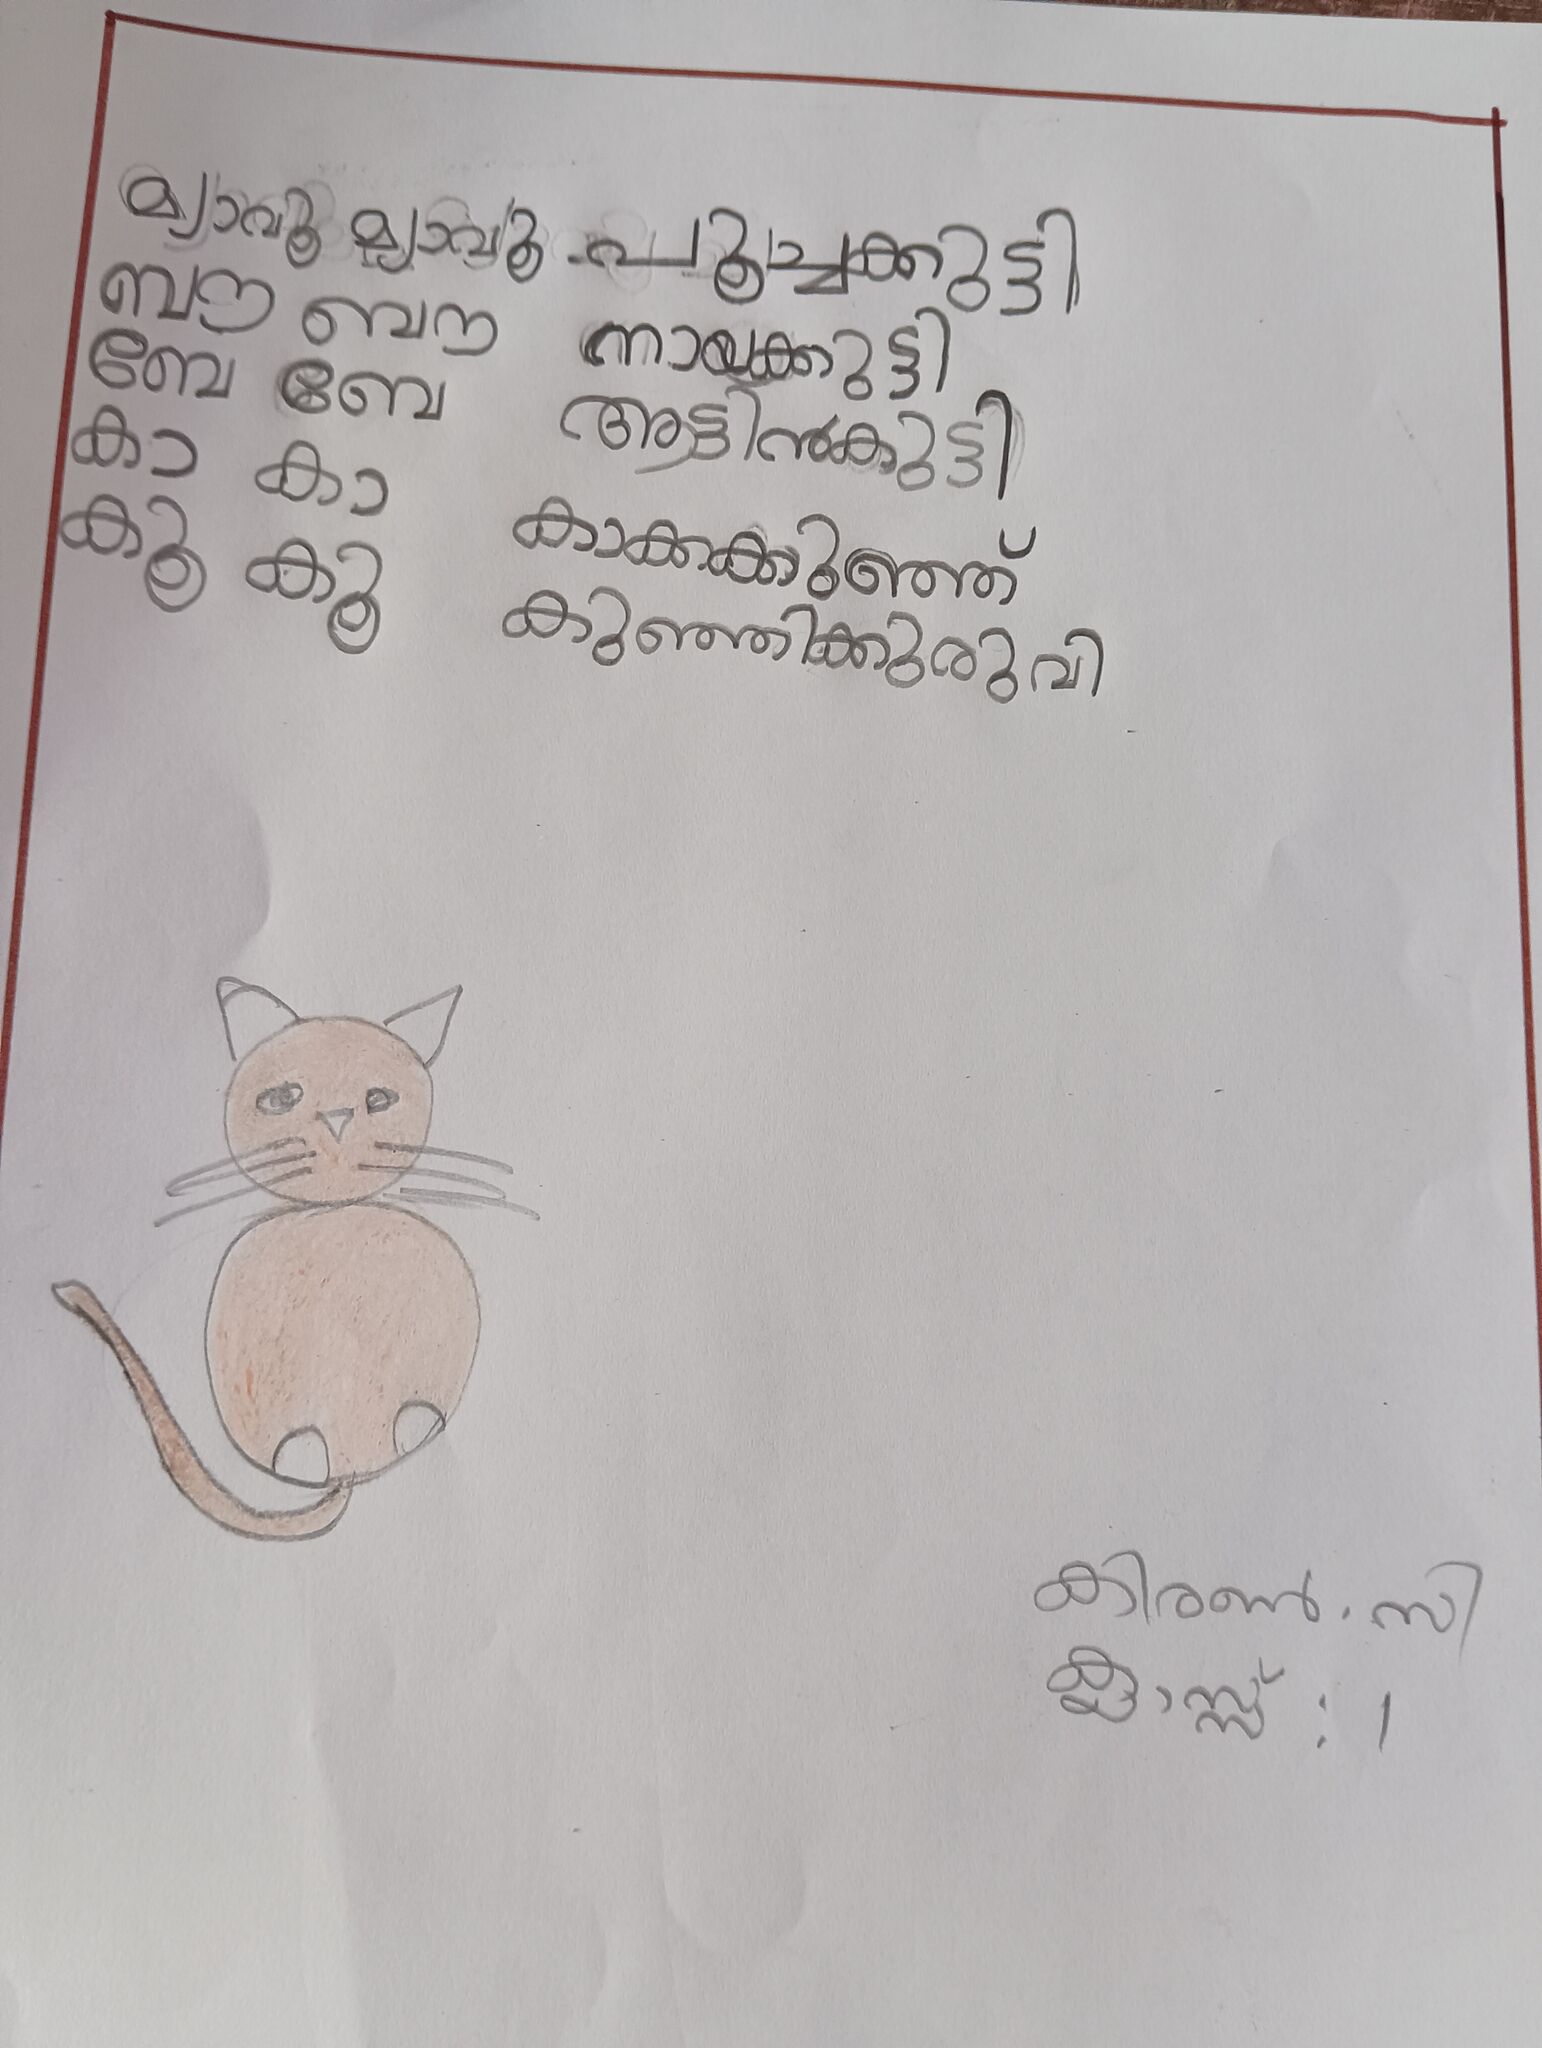 മ്യാവൂ മ്യാവൂ പൂച്ചക്കുട്ടി
ബൗ ബൗ നായക്കുട്ടി
ബേ ബേ ആട്ടിൻകുട്ടി
കാ കാ കാക്കക്കുഞ്ഞ്
കൂ കൂ കുഞ്ഞിക്കുരുവി
കിരൺ. സി
ക്ലാസ്സ് : 1